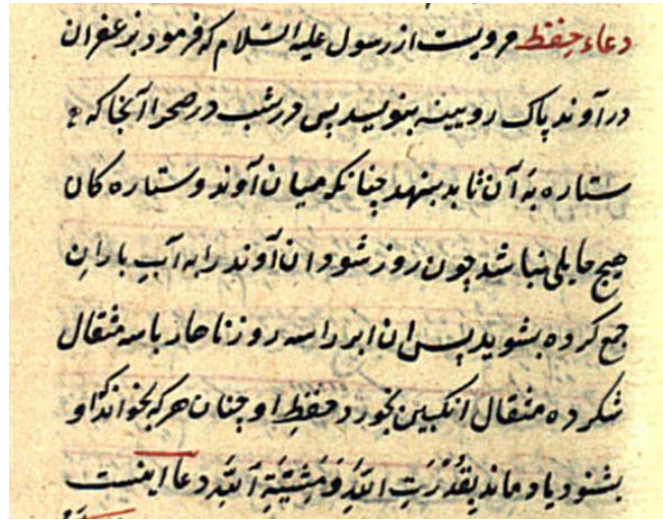 دعاء حفظ مرویست از رسول علیه السّلام که فرمود بزعفران
در آوند پاک رویینه بنویسد پس در شب در صحرا آنجا که
ستاره به آن تابد بنهد چنانکه میان آوند و ستاره کان
هیچ حایلی نباشد چون روز شود ان آوند را به آب باران
جمع کرده بشوید پس ان ابرا سه روز ناهار با سه مثقال
شکر ده مثقال انکبین بخورد حفظِ او چنان هرکه بخواند او
بشنود یاد ماند بِقُدْرَتِ اللهِ وَ مَشِیَّةِ آللهِ دعا اینست